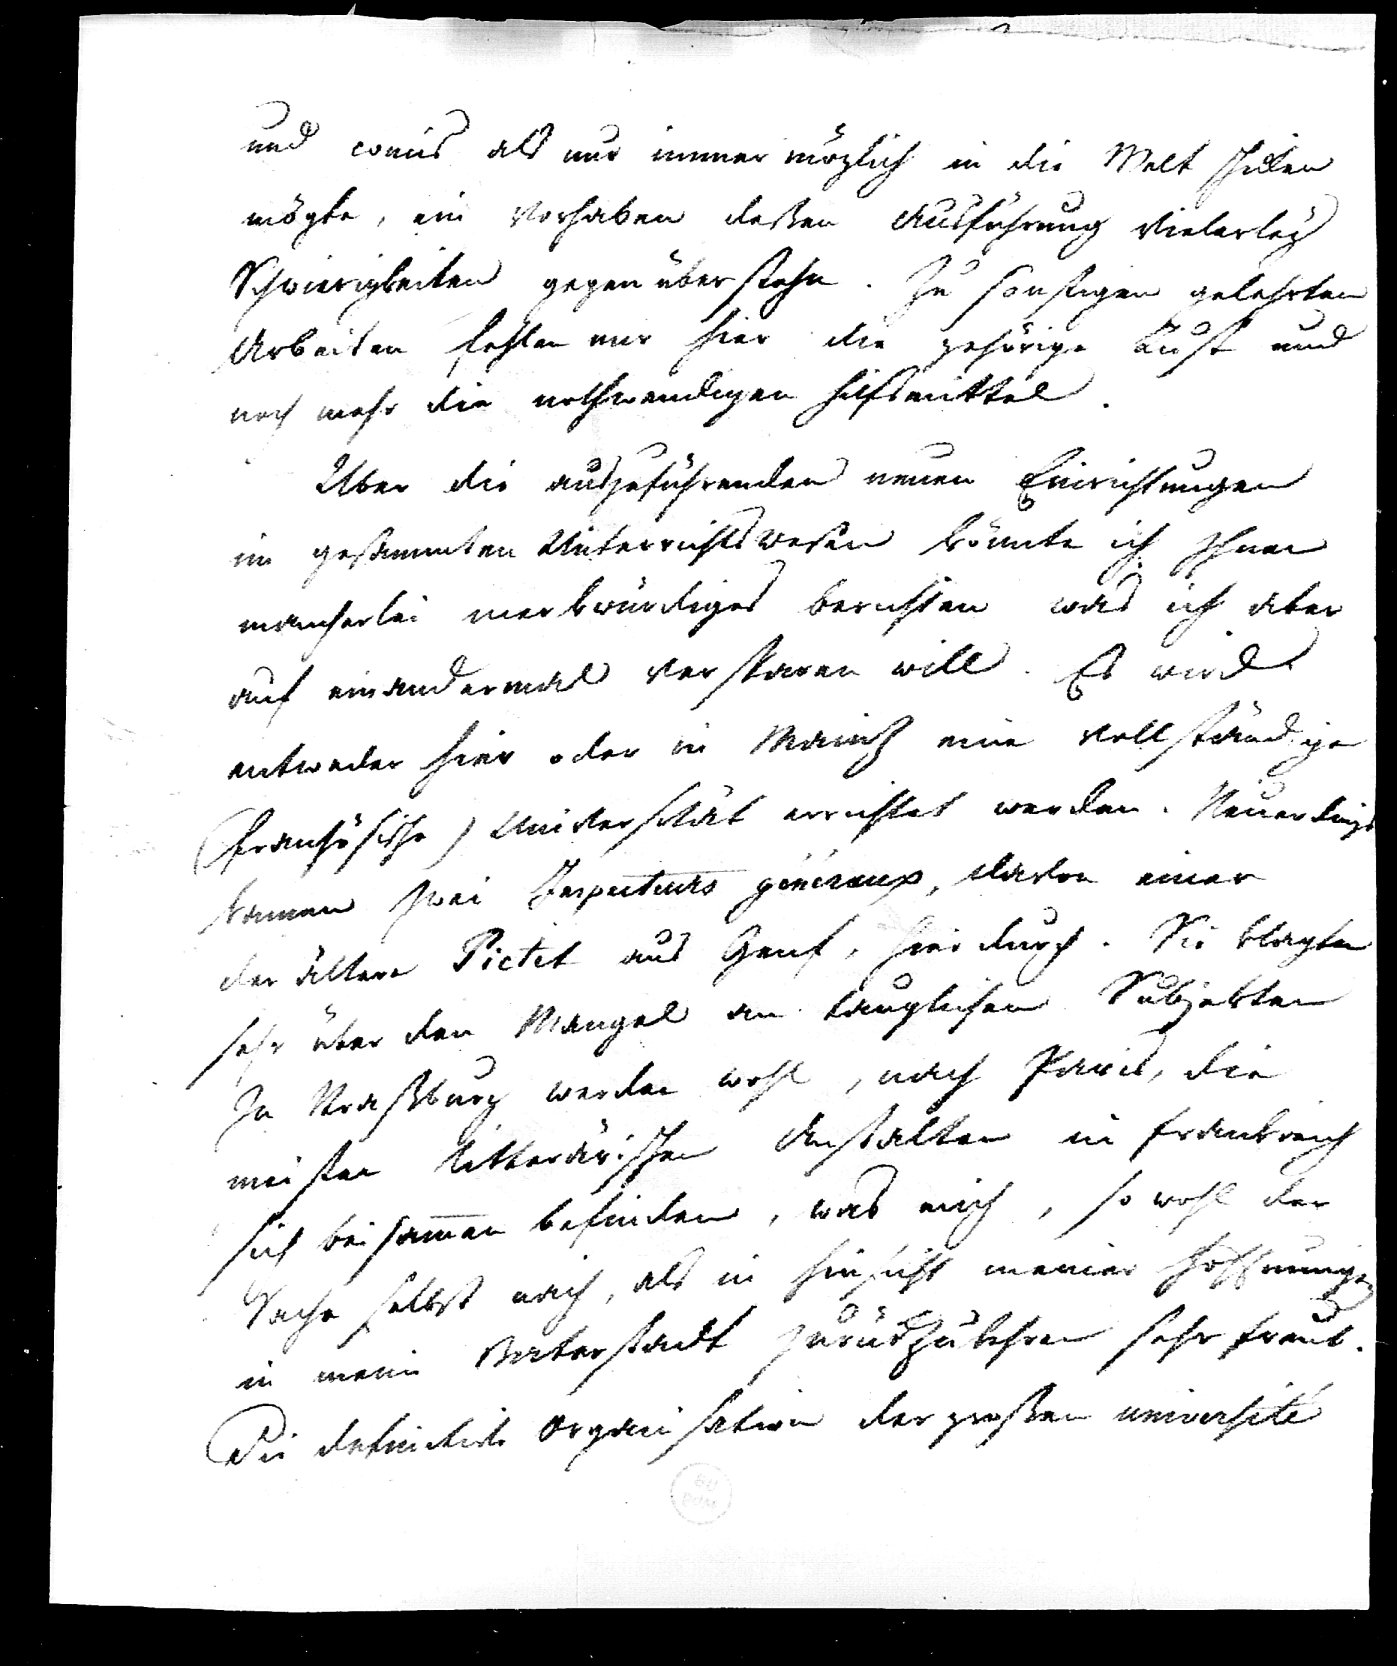 und comis als nur immer möglich in die Welt schicken
mögte, ein Vorhaben deßen Ausführung vielerley
Schwierigkeiten gegenüber stehn. Zu sonstigen gelehrten
Arbeiten fehlen mir hier die gehörige Lust und
noch mehr die nothwendigen Hilfsmittel.
Über die auszuführenden neuen Einrichtungen
im gesammten Unterrichtswesen könnte ich Ihnen
mancherlei merkwürdiges berichten was ich aber
auf einandermal versparen will. Es wird
entweder hier oder in Mainz eine vollständige
(französische) Universität errichtet werden. Neuerdings
kamen zwei Inspecteurs généraux, davon einer
der ältere Pictet aus Genf, hierdurch. Sie klagten
sehr über den Mangel an tauglichen Subjekten
In Straßburg werden wohl, nach Paris, die
meisten litterärischen Anstalten in Frankreich
sich beisam̅en befinden, was mich, so wohl der
Sache selbst nach, als in Hinsicht meiner Hoffnungen
in meine Vaterstadt zurückzukehren sehr freut.
Die definitive Organisation der großen université